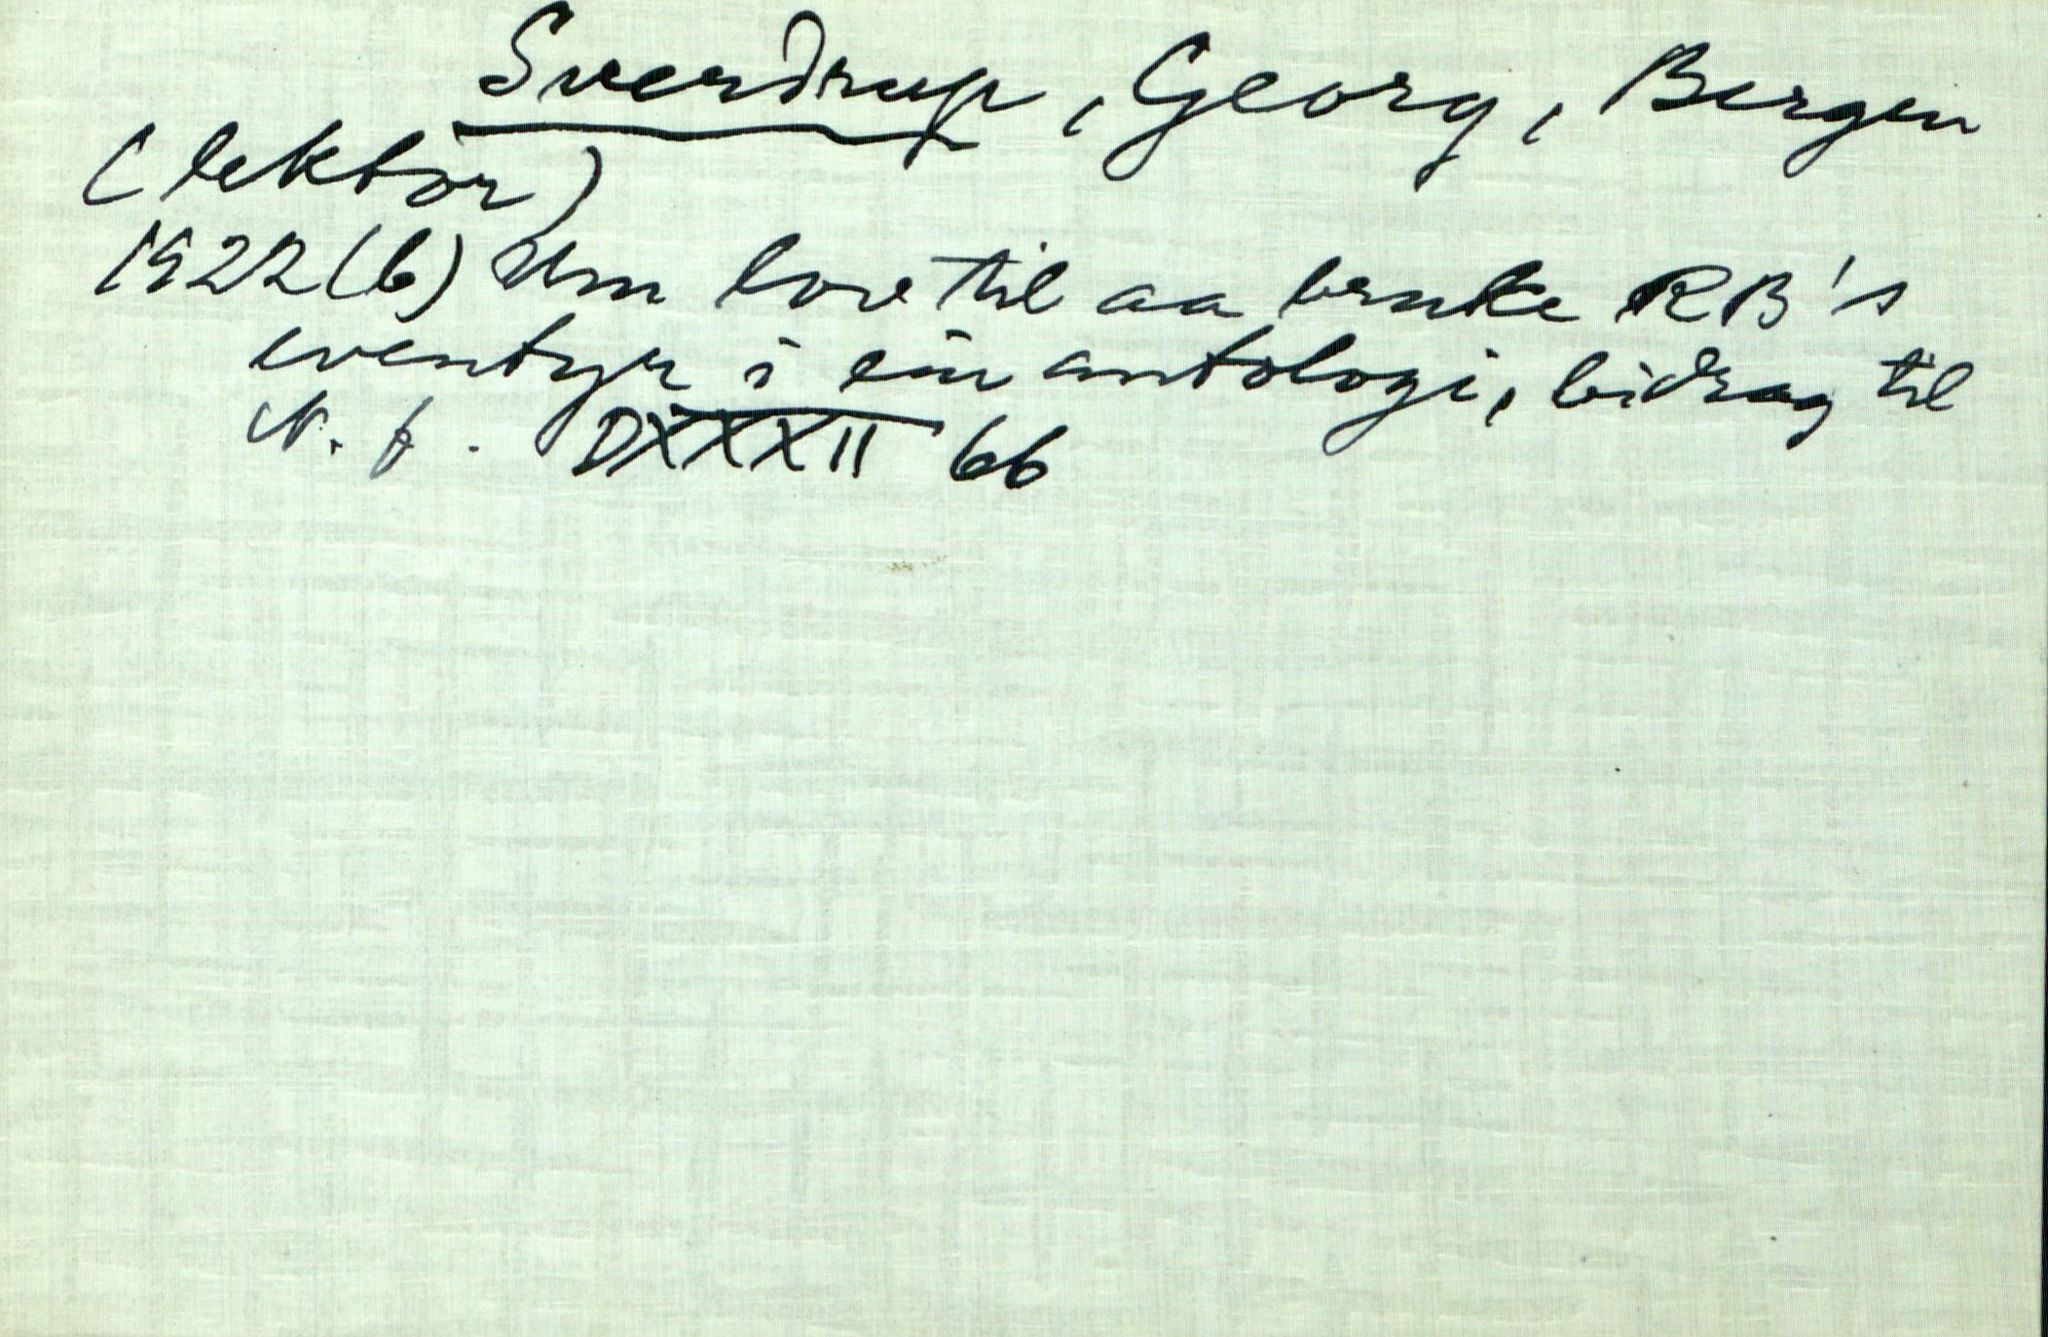 Sverdrup, Georg, Bergen
(lektor)
1922(b) Um love til aa bruke RB's
eventyr i ein antologi, bidrag til
N. f. DXXXII 66